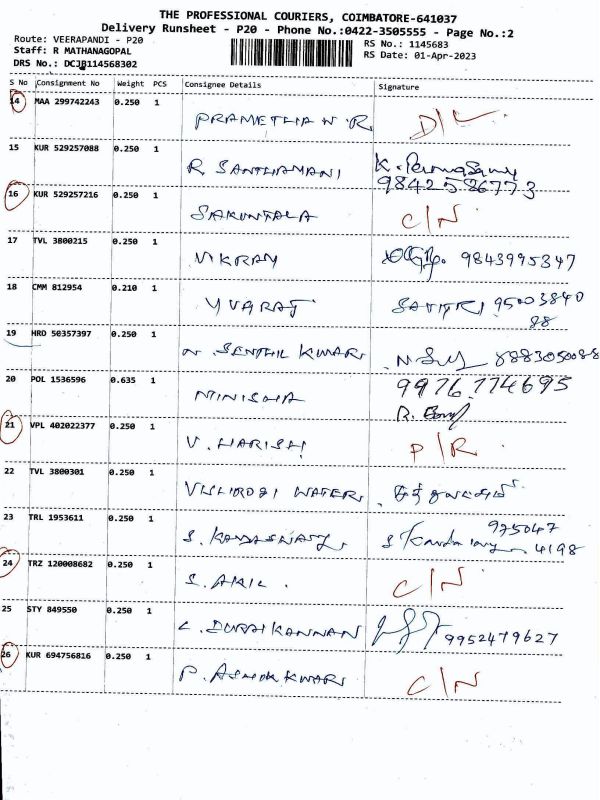 THE PROFESSIONAL COURIERS, COIMBATORE-641037
Delivery Runsheet - P20 - Phone No.:0422-3505555 - Page No.:2
Route: VEERAPANDI - P20
Staff: R MATHANAGOPAL
DRS No.: DCJB114568302
RS No.: 1145683
RS Date: 01-Apr-2023
S No Consignment No Weight PCS Consignee Details Signature
14 MAA 299742243 0.250 1 PRAMETHA N R. D/L
15 KUR 529257088 0.250 1 R SANTHAMANI K.
9842586773
16 KUR 529257216 0.250 1 SAKUNTALA C/N
17 TVL 3800215 0.250 1 VIKRAM 9843995347
18 CMM 812954 0.210 1 YUVARAJ SAVITRI 95003840
88
19 HRD 50357397 0.250 1 N. SENTHIL KUMAR 8883050088
20 POL 1536596 0.635 1 MINISHA 9976774695
21 VPL 402022377 0.250 1 V. HARISH P/R
22 TVL 3800301 0.250 1 WATER
23 TRL 1953611 0.250 1 S. KANDASWAMY 975047
4198
24 TRZ 120008682 0.250 1 S. AKIL. C/N
25 STY 849550 0.250 1 C. DURAI KANNAN 9952479627
26 KUR 694756816 0.250 1 P. ASHOK KUMAR C/N